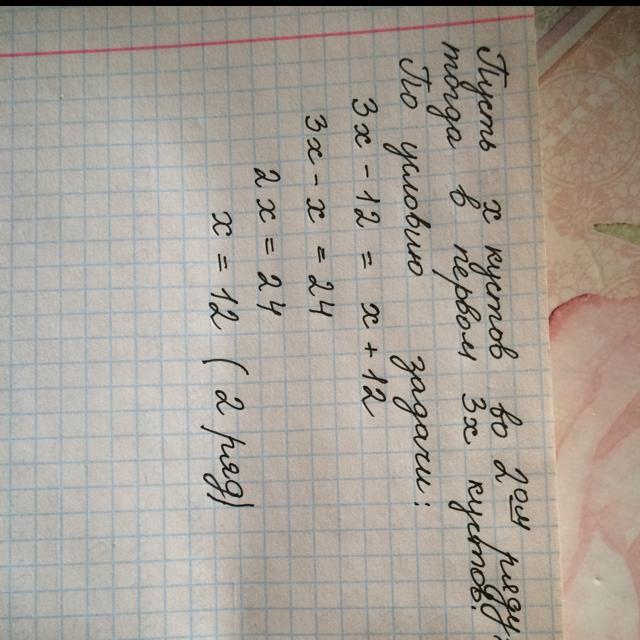 Пусть x кустов во 2ом ряду,
тогда в первом 3x кустов.
По условию задачи:
3x - 12 = x + 12
3x - x = 24
2x = 24
x = 12 (2 ряд)